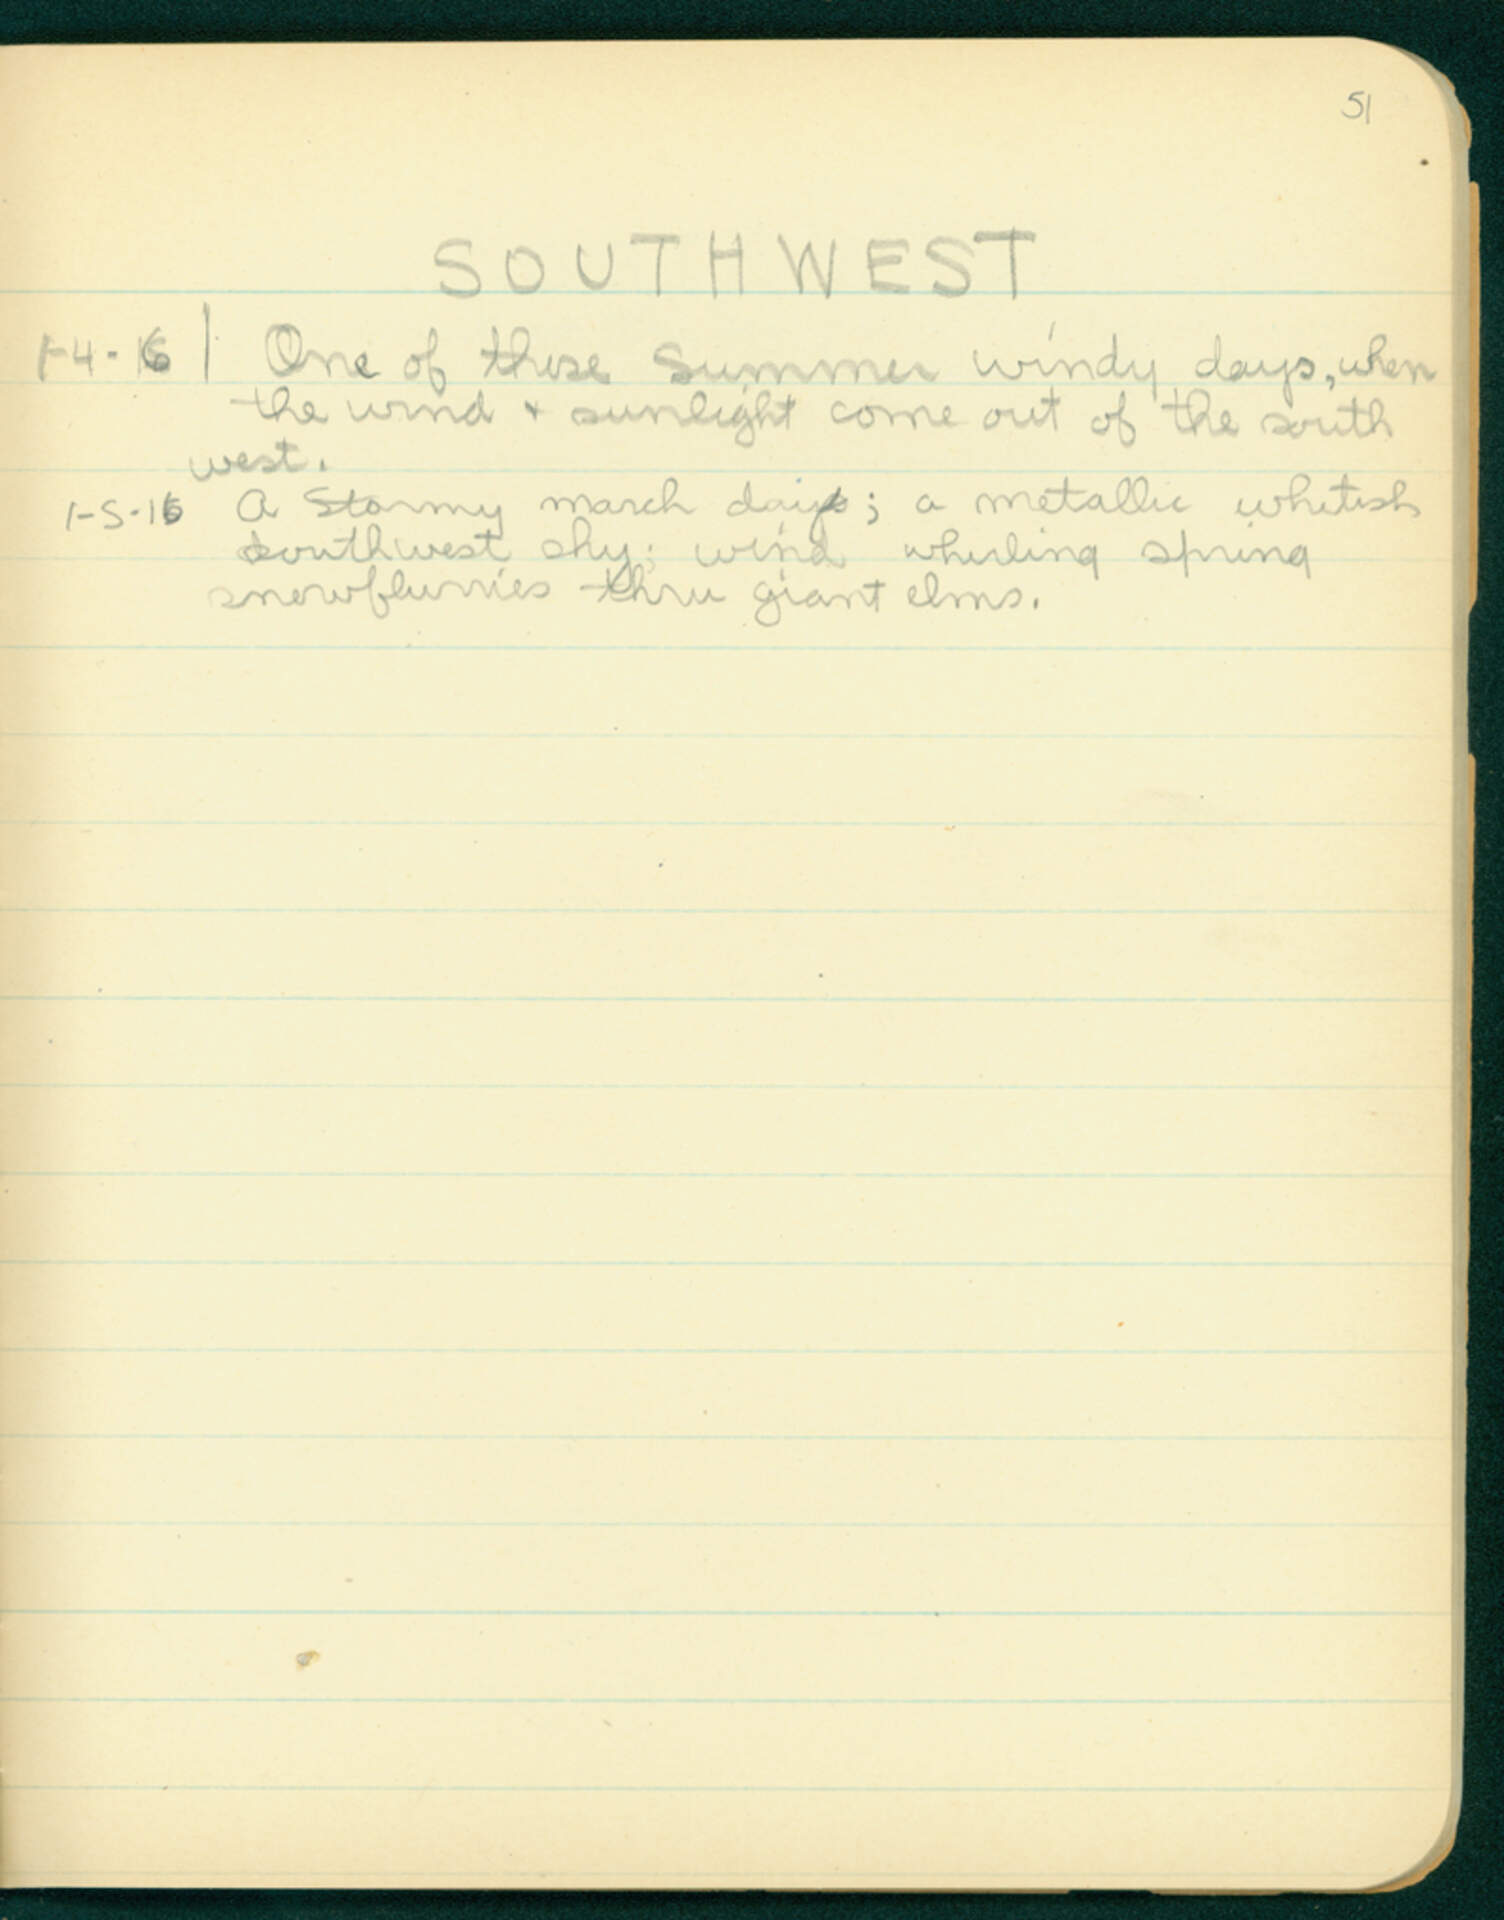 51
SOUTHWEST
1-4-16 | One of those Summer windy days, when
the wind + sunlight come out of the south
west.
1-5-16 A Stormy march day; a metallic whitish
southwest sky; wind whirling spring
snowflurries thru giant elms.